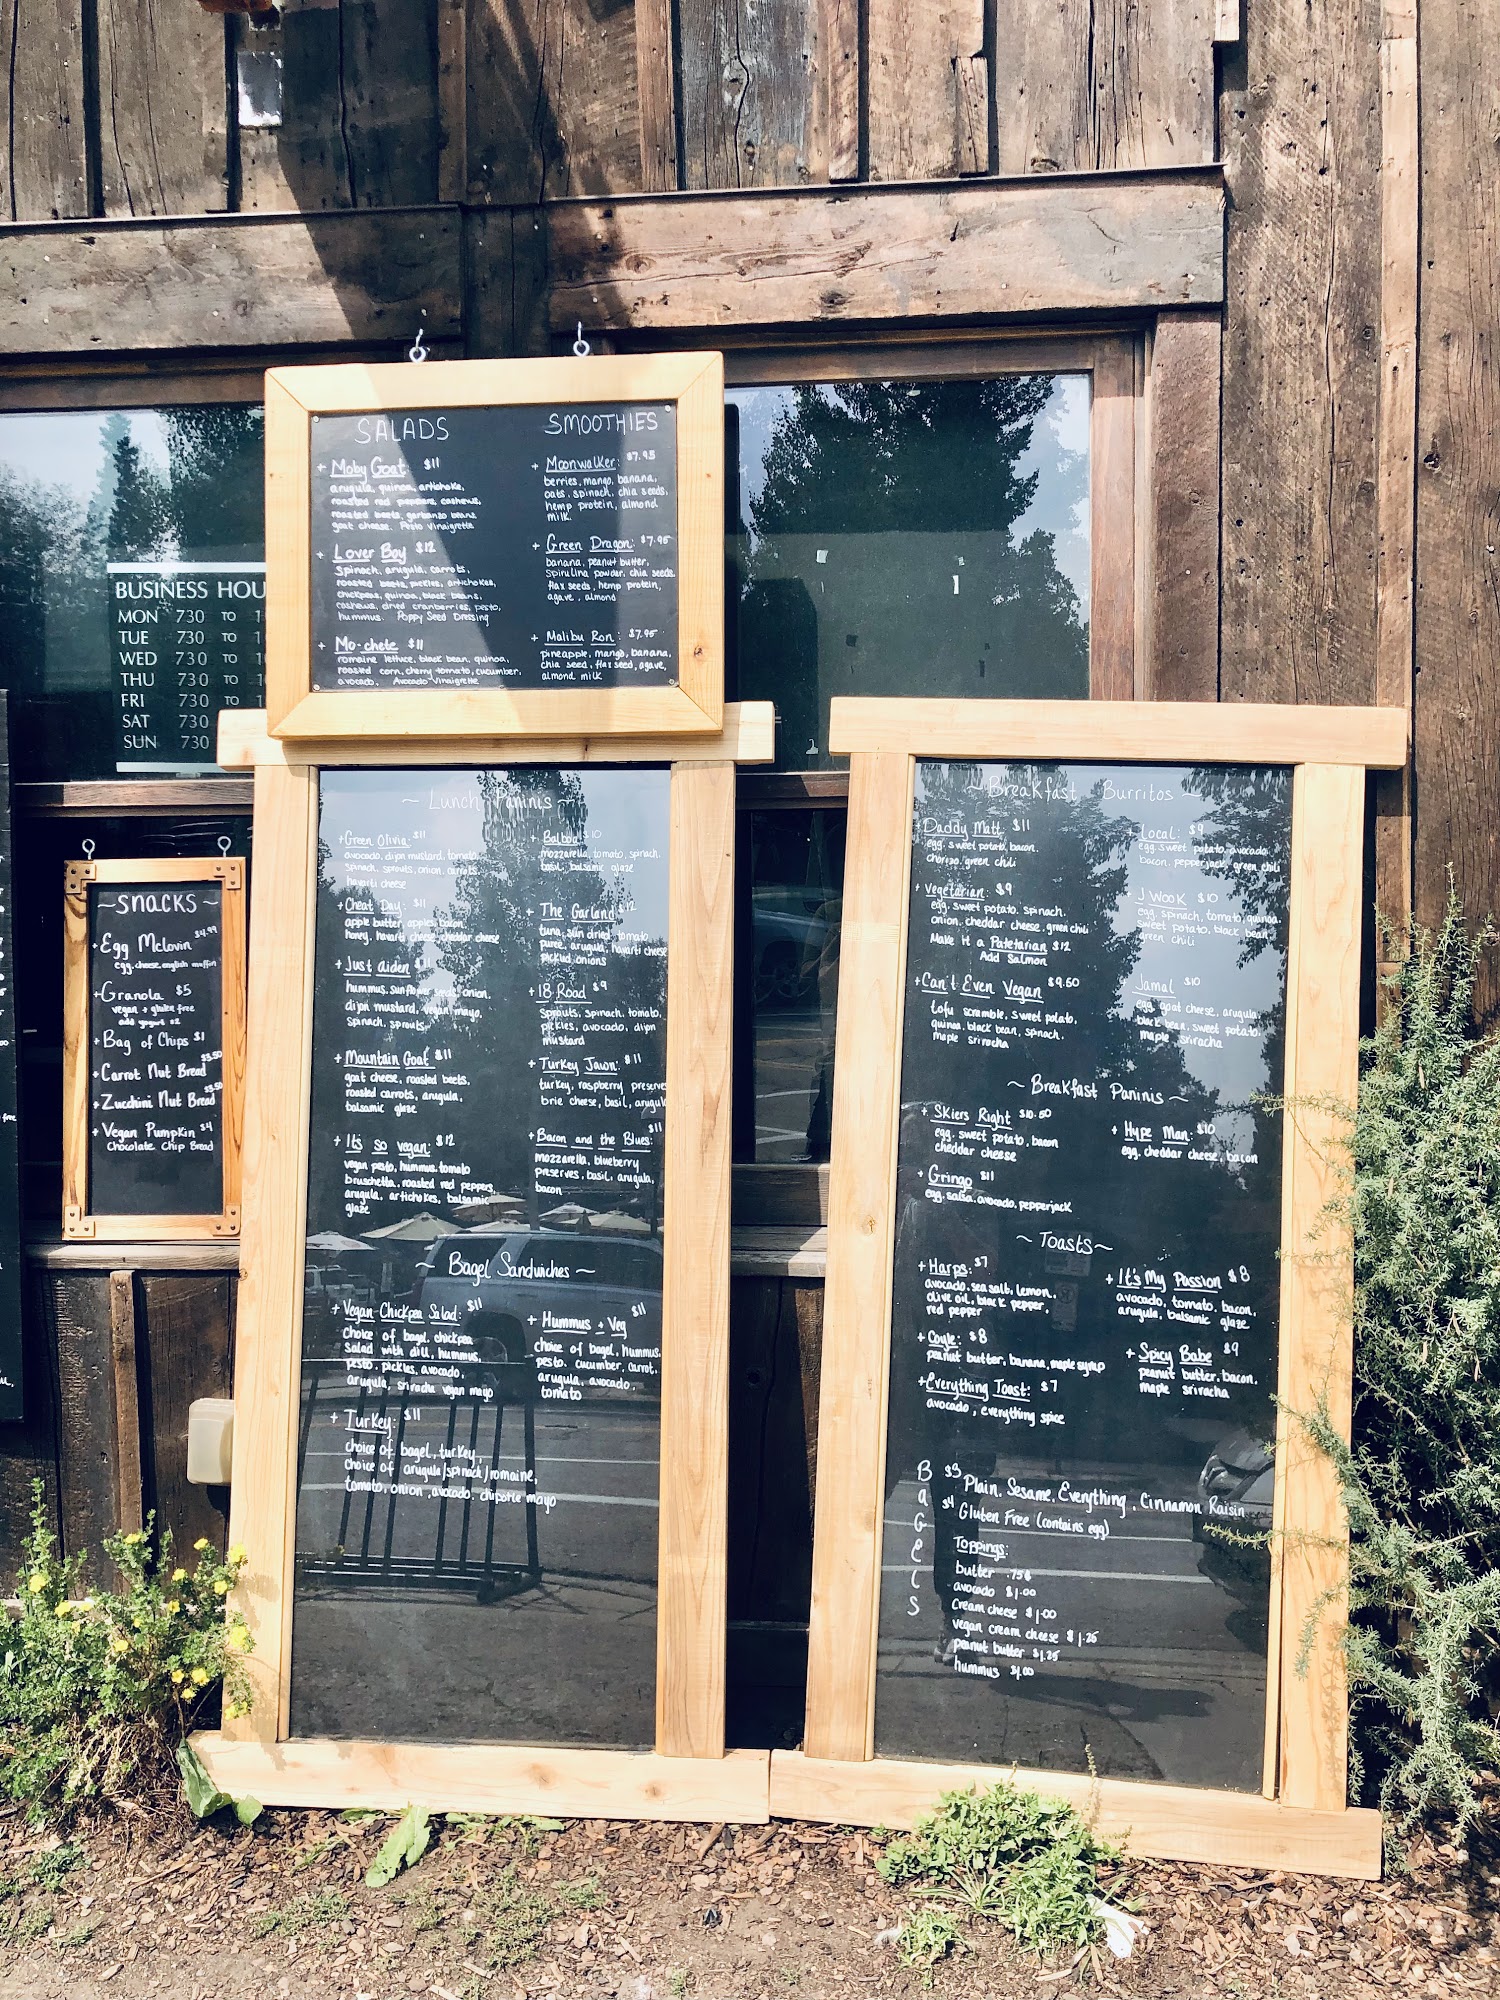 SALADS
+ Moby Goat $11
arugula, quinoa, artichoke,
roasted red peppers, cashews,
roasted beets, garbanzo beans,
goat cheese. Pesto Vinaigrette
+ Lover Boy $12
Spinach, arugula, carrots,
roasted beets, pickles, artichokes,
chickpeas, quinoa, black beans,
cashews, dried cranberries, pesto,
hummus. Poppy Seed Dressing
+ Mo-chete $11
romaine lettuce, black bean, quinoa,
roasted corn, cherry tomato, cucumber,
avocado. Avocado Vinaigrette
SMOOTHIES
+ Moonwalker: $7.95
berries, mango, banana,
oats, spinach, chia seeds,
hemp protein, almond
milk.
+ Green Dragon: $7.95
banana, peanut butter,
Spirulina powder, chia seeds,
flax seeds, hemp protein,
agave, almond
+ Malibu Ron: $7.95
pineapple, mango, banana,
chia seed, flax seed, agave,
almond milk
BUSINESS HOU
MON 730 TO 1
TUE 730 TO 1
WED 730 TO 1
THU 730 TO 1
FRI 730 TO
SAT 730
SUN 730
~SNACKS~
+ Egg Mclovin $4.99
egg, cheese, english muffin
+Granola $5
vegan + gluten free
add yogurt $2
+ Bag of Chips $1
+ Carrot Nut Bread $3.50
+ Zucchini Nut Bread $3.50
+ Vegan Pumpkin $4
Chocolate Chip Bread
~ Lunch Paninis ~
+Green Olivia: $11
avocado, dijon mustard, tomato,
spinach, sprouts, onion, carrots,
havarti cheese
+Cheat Day: $11
apple butter, apples, bacon,
honey, havarti cheese, cheddar cheese
+Just Aiden $11
hummus, sunflower seeds, onion,
dijon mustard, vegan mayo,
spinach, sprouts
+ Mountain Goat $11
goat cheese, roasted beets,
roasted carrots, arugula,
balsamic glaze
+ It's so vegan: $12
vegan pesto, hummus, tomato
bruschetta, roasted red peppers,
arugula, artichokes, balsamic
glaze
+ Balboa $10
mozzarella, tomato, spinach,
basil, balsamic glaze
+ The Garland $12
tuna, sun dried tomato
puree, arugula, havarti cheese
pickled onions
+ 18 Road $9
Sprouts, spinach, tomato,
pickles, avocado, dijon
mustard
+ Turkey Jawn: $11
turkey, raspberry preserves
brie cheese, basil, arugula
+ Bacon and the Blues: $11
mozzarella, blueberry
preserves, basil, arugula,
bacon
~ Bagel Sandwiches ~
+ Vegan Chickpea Salad: $11
choice of bagel, chickpea
Salad with dill, hummus,
pesto, pickles, avocado,
arugula, sriracha vegan mayo
+ Hummus + Veg $11
choice of bagel, hummus,
pesto, cucumber, carrot,
arugula, avocado,
tomato
+ Turkey: $11
choice of bagel, turkey,
Choice of arugula/spinach/romaine,
tomato, onion, avocado, chipotle mayo
~ Breakfast Burritos ~
Daddy Matt: $11
egg, sweet potato, bacon,
chorizo, green chili
+ Vegetarian: $9
egg, sweet potato, spinach,
onion, cheddar cheese, green chili
Make it a Patetarian $12
Add Salmon
+Can't Even Vegan $9.50
tofu scramble, sweet potato,
quinoa, black bean, spinach,
maple sriracha
Local: $9
egg, sweet potato, avocado,
bacon, pepperjack, green chili
J Wook $10
egg, spinach, tomato, quinoa,
sweet potato, black bean,
green chili
Jamal $10
egg, goat cheese, arugula,
black bean, sweet potato,
maple sriracha
~ Breakfast Paninis ~
+ Skiers Right $10.50
egg, sweet potato, bacon
cheddar cheese
+ Gringo $11
egg, salsa, avocado, pepperjack
+ Hype Man: $10
egg, cheddar cheese, bacon
~Toasts~
+ Harps: $7
avocado, sea salt, lemon,
olive oil, black pepper,
red pepper
+ Coyle: $8
peanut butter, banana, maple syrup
+Everything Toast: $7
avocado, everything spice
+ It's My Passion $8
avocado, tomato, bacon,
arugula, balsamic glaze
+ Spicy Babe $9
peanut butter, bacon,
maple sriracha
BaGels
$3 Plain, Sesame, Everything, Cinnamon Raisin
$4 Gluten Free (contains egg)
Toppings:
butter .75¢
avocado $1.00
Cream cheese $1.00
vegan cream cheese $1.25
peanut butter $1.25
hummus $1.00